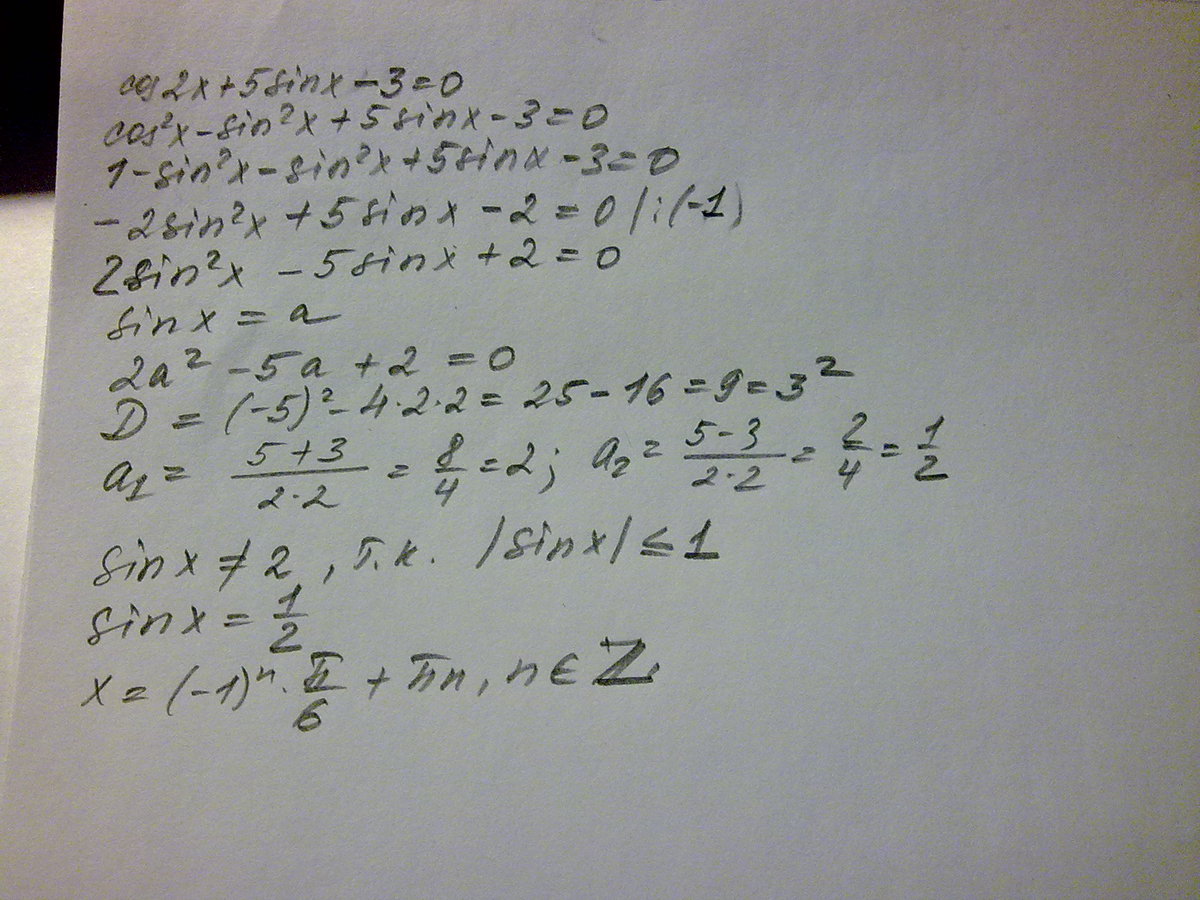 cos2x+5sinx-3=0
cos²x-sin²x+5sinx-3=0
1-sin²x-sin²x+5sinx-3=0
-2sin²x+5sinx-2=0 |:(-1)
2sin²x-5sinx+2=0
sinx=a
2a²-5a+2=0
D=(-5)²-4·2·2=25-16=9=3²
a₁=(5+3)/(2·2)=8/4=2; a₂=(5-3)/(2·2)=2/4=1/2
sinx≠2, т.к. |sinx|≤1
sinx=1/2
x=(-1)ⁿ·π/6+πn, n∈Z.